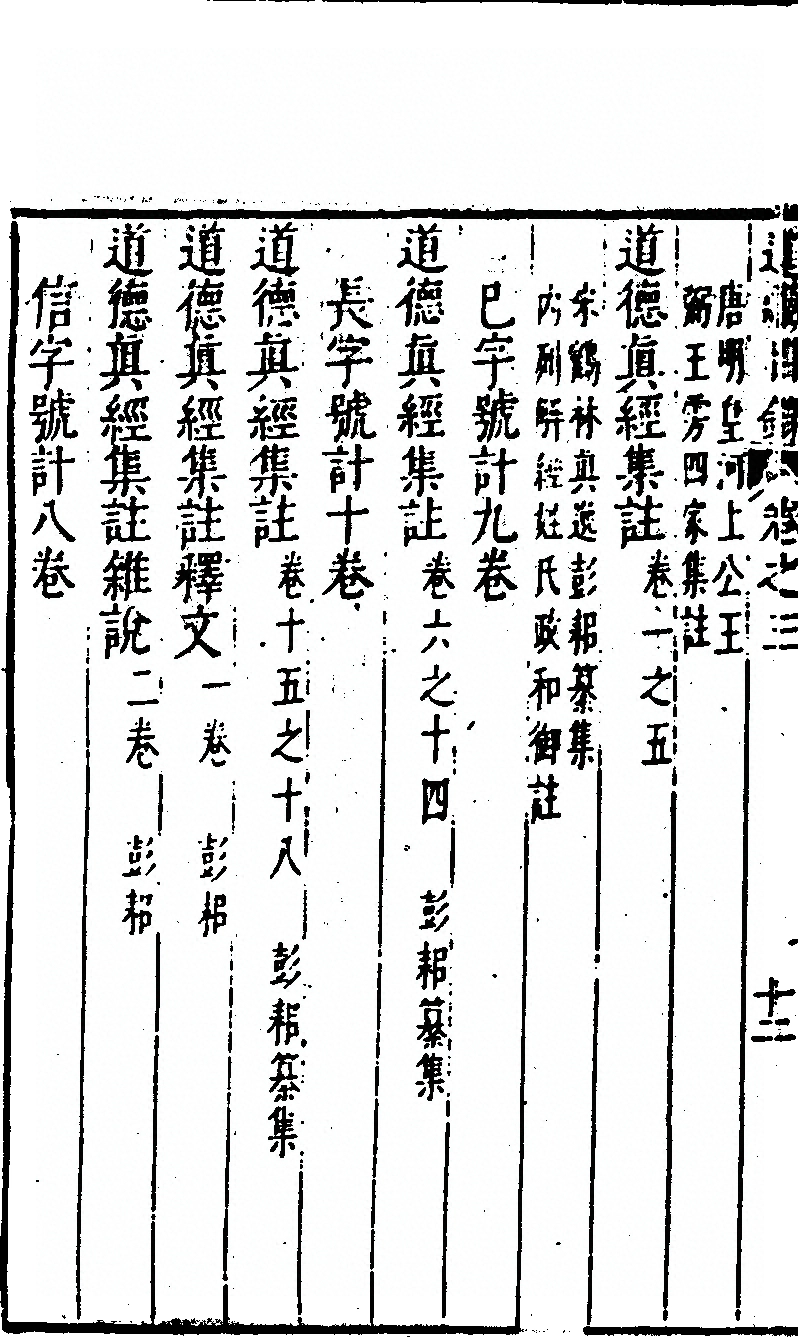 卷之三
十二
唐明皇河上公王
弼王雱四家集註
道德眞經集註 卷一之五
宋鶴林真逸彭耜纂集
內列解經姓氏政和御註
巳字號計九卷
道德眞經集註 卷六之十四 彭耜纂集
長字號計十卷
道德眞經集註 卷十五之十八 彭耜纂集
道德眞經集註釋文 一卷 彭耜
道德眞經集註雜說 二卷 彭耜
信字號計八卷